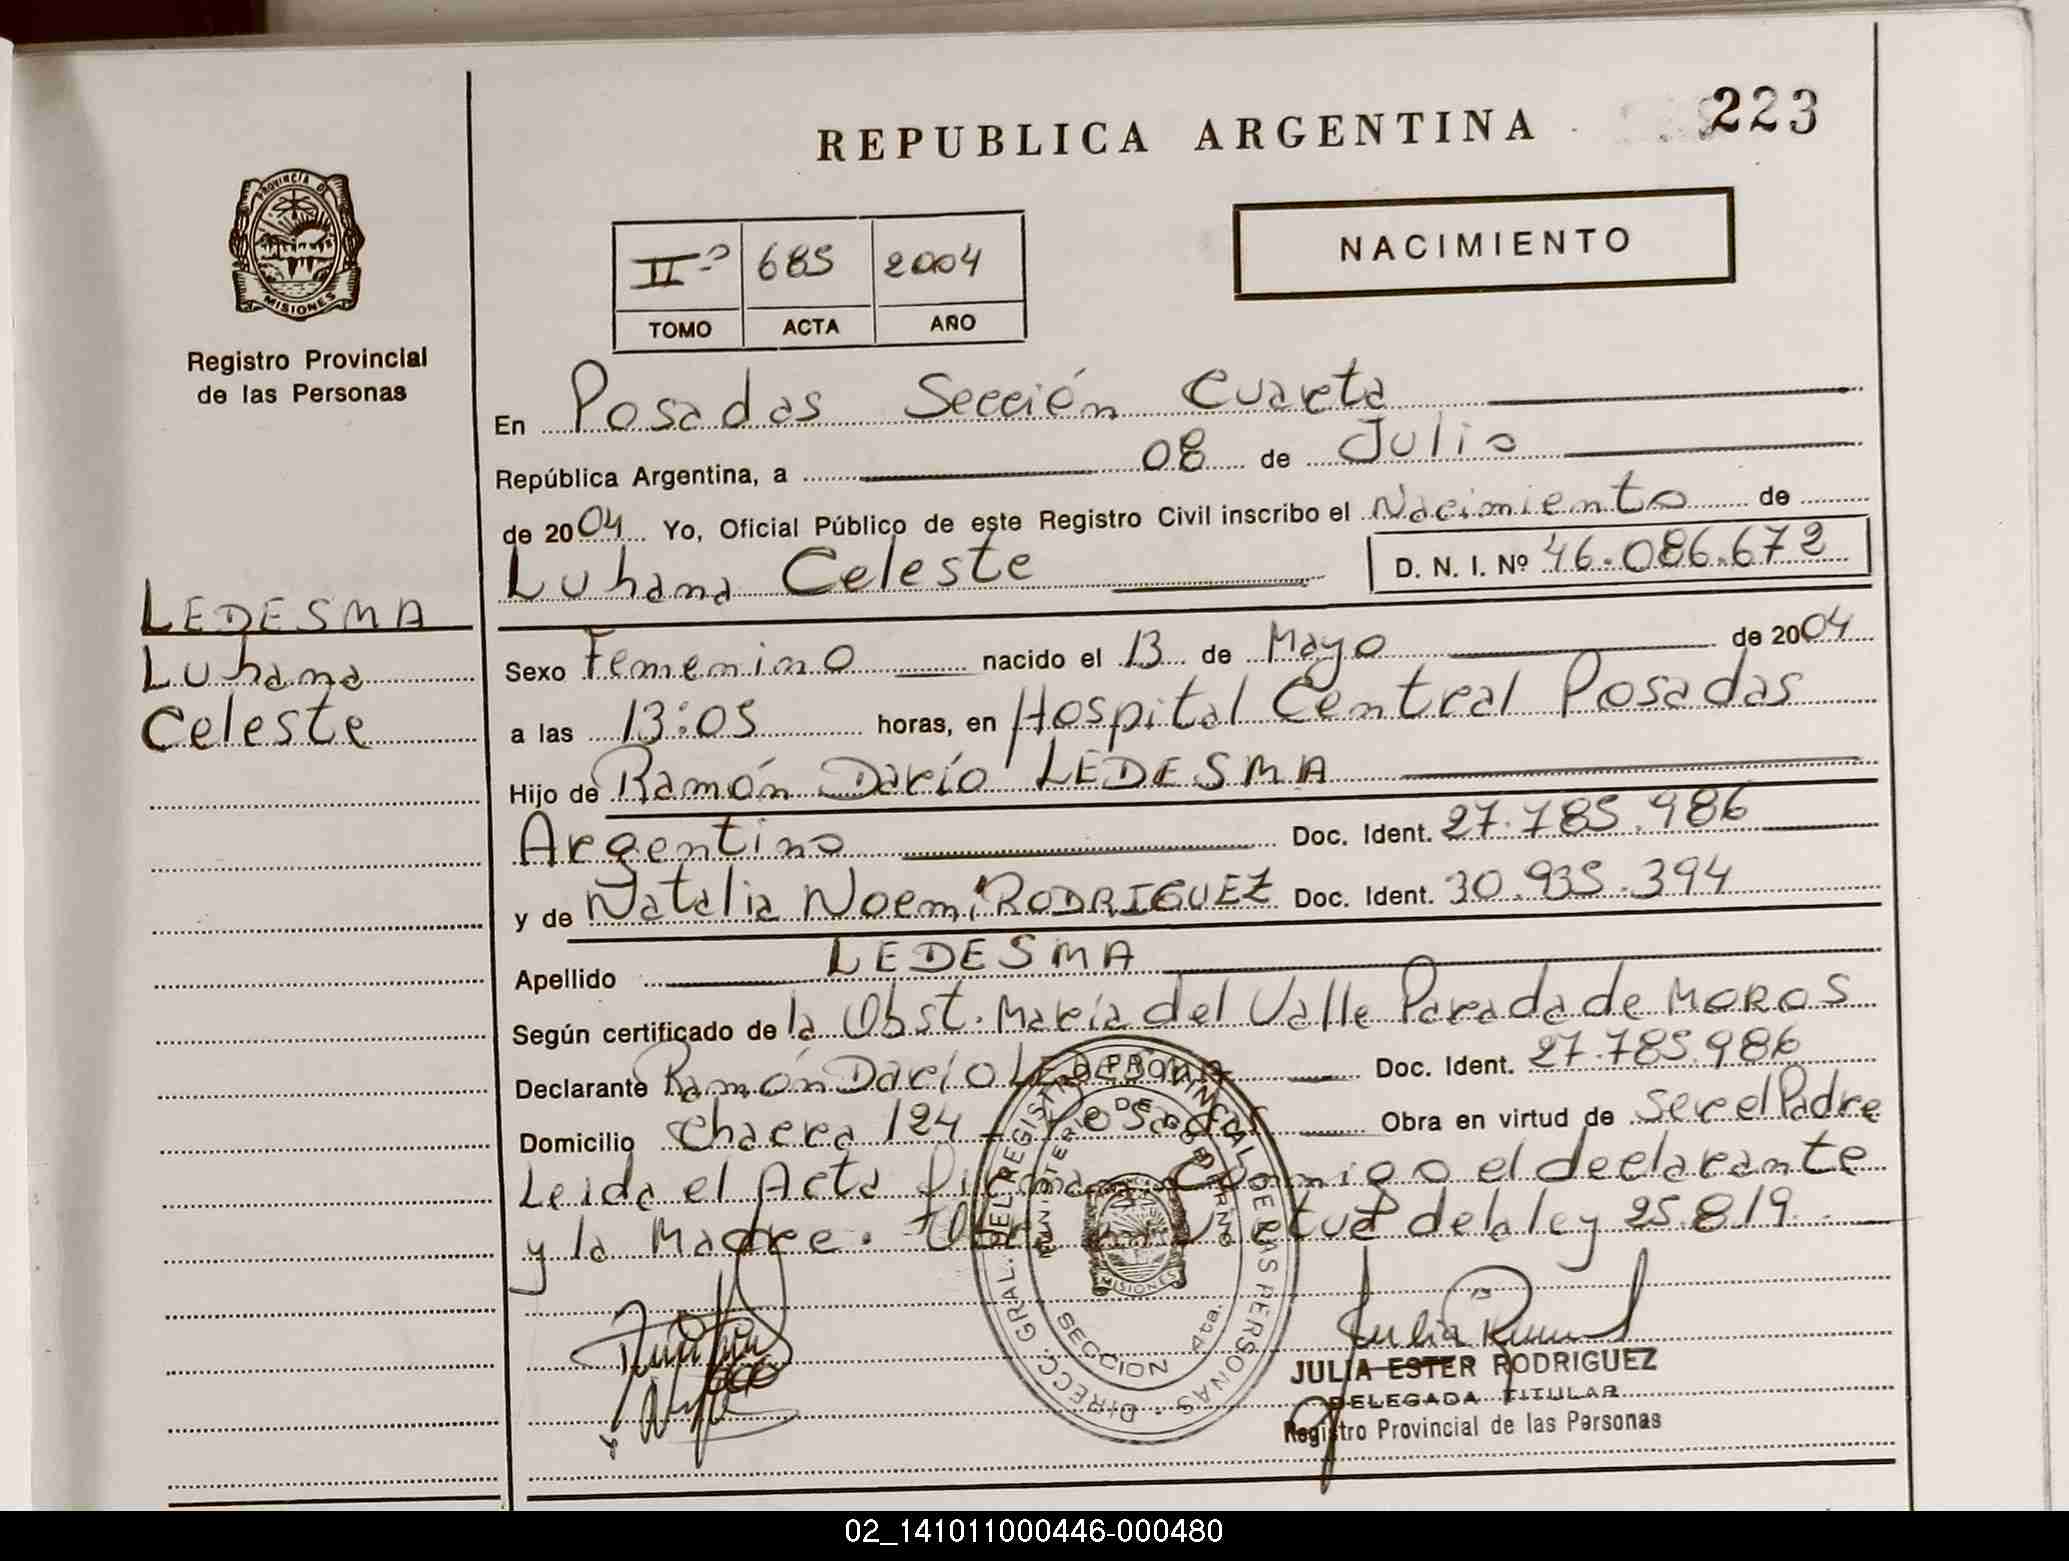 REPUBLICA ARGENTINA 223
PROVINCIA DE
MISIONES
Registro Provincial
de las Personas
NACIMIENTO
IIº 685 2004
TOMO ACTA AÑO
En Posadas Sección Cuarta
República Argentina, a 08 de Julio
de 2004 Yo, Oficial Público de este Registro Civil inscribo el Nacimiento de
Luhana Celeste D. N. I. Nº 46.086.672
LEDESMA
Luhana
Celeste
Sexo Femenino nacido el 13 de Mayo de 2004
a las 13:05 horas, en Hospital Central Posadas
Hijo de Ramón Darío LEDESMA
Argentino Doc. Ident. 27.785.986
y de Natalia Noemí RODRIGUEZ Doc. Ident. 30.935.394
Apellido LEDESMA
Según certificado de la Obst. María del Valle Parada de MOROS
Declarante Ramón Darío LEDESMA Doc. Ident. 27.785.986
Domicilio Chacra 124 - Posadas Obra en virtud de ser el Padre
Leida el Acta Firman Conmigo el declarante
y la Madre. Obra en Virtud de la ley 25.819.
DIRECC. GRAL. DEL REGISTRO PROVINCIAL DE LAS PERSONAS
MINISTERIO DE GOBIERNO
MISIONES
SECCION 4ta.
JULIA ESTER RODRIGUEZ
DELEGADA TITULAR
Registro Provincial de las Personas
02_141011000446-000480